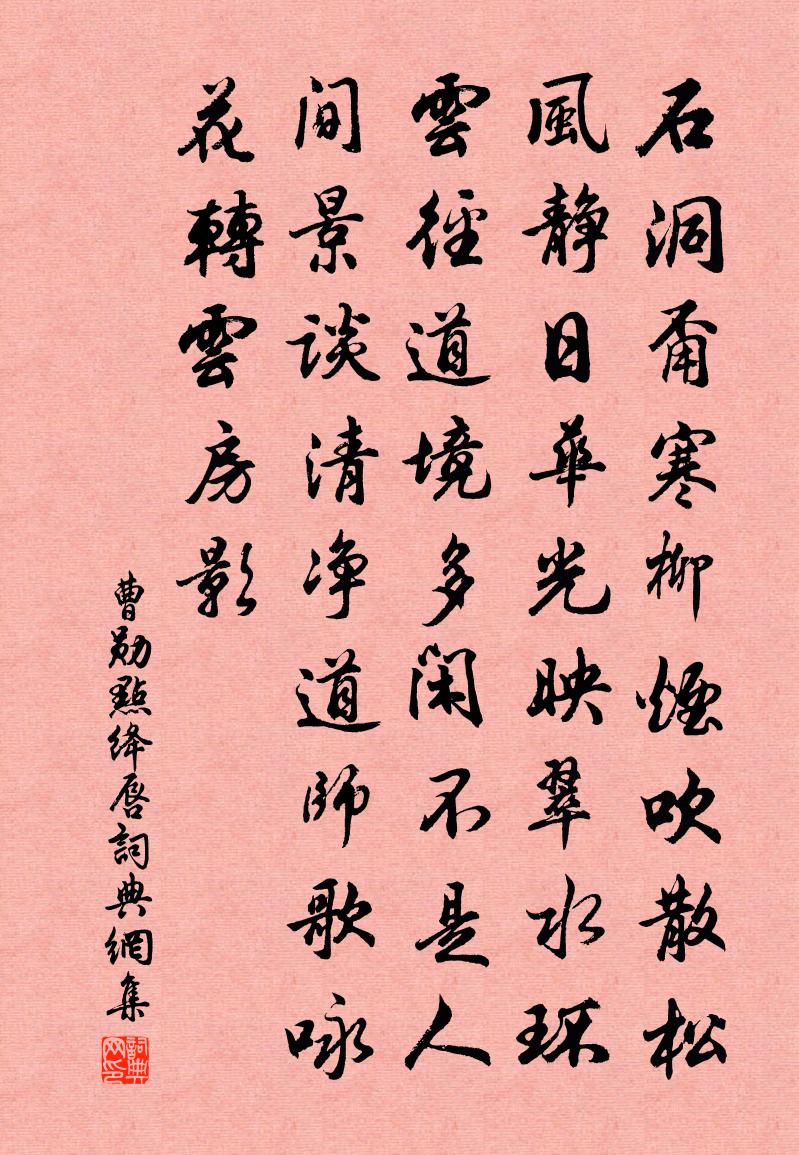 石洞甭寒柳煙吹散松
風静日華光映翠水环
雲徑道境多閑不是人
间景談清净道師歌咏
花轉雲房影
曹勛點絳唇詞典網集
詞典网印